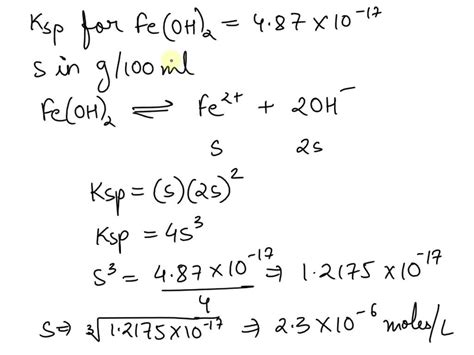 Ksp for Fe(OH)₂ = 4.87 × 10⁻¹⁷
S in g/100 ml
Fe(OH)₂ ⇌ Fe²⁺ + 2OH⁻
S 2s
Ksp = (s)(2s)²
Ksp = 4s³
S³ = 4.87 × 10⁻¹⁷ / 4 ⇒ 1.2175 × 10⁻¹⁷
S ⇒ ∛1.2175 × 10⁻¹⁷ ⇒ 2.3 × 10⁻⁶ moles/L